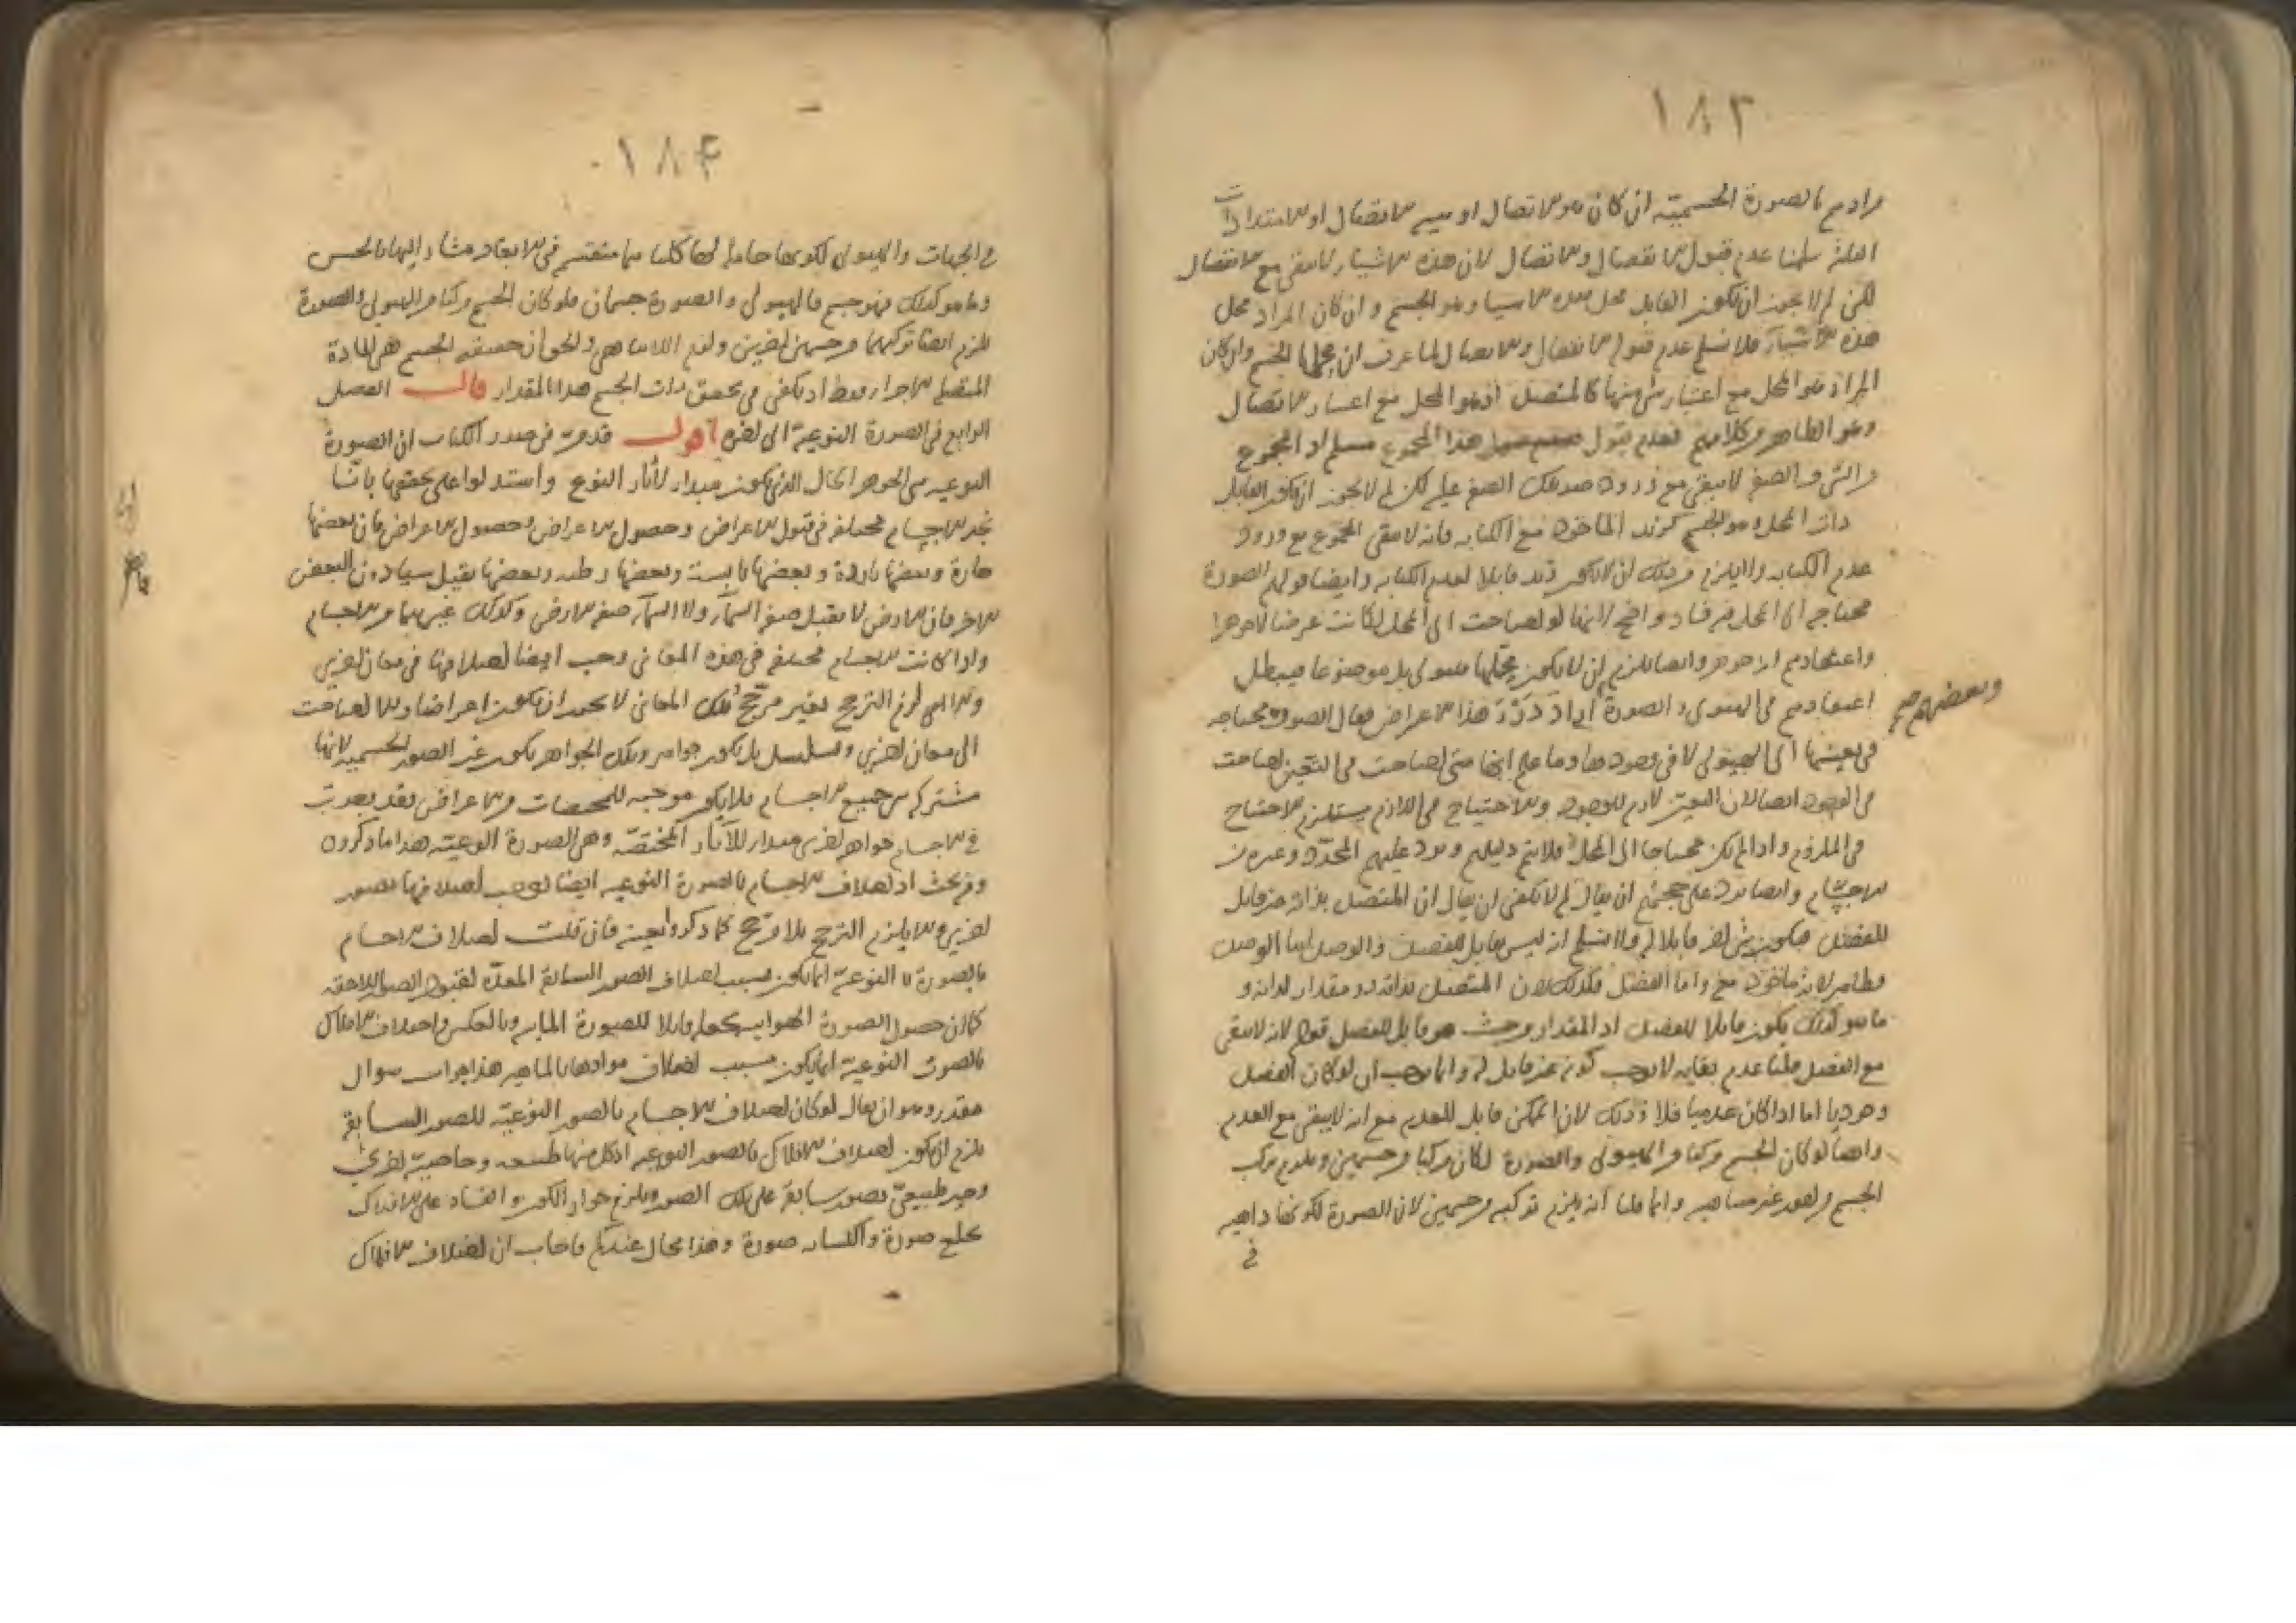 ١٨٣
مرادهم بالصورة الجسمية ان كان هو الاتصال او الاتصال او الامتدادات
الثلثة سلمنا عدم قبول الانفصال والاتصال لان هذه الاشياء لا تبقى مع الانفصال
لكن لم لا يجوز ان يكون القابل محل هذه الاشياء وهو الجسم وان كان المراد محل
هذه الاشياء فلا نسلم عدم قبول الانفصال والاتصال لما عرف ان محلها الجسم وان كان
المراد هو المحل مع اعتبار شئ منها كالمتصل اذ هو المحل مع اعتبار الاتصال
وهو الظاهر من كلامهم فعدم قبول هذا المجموع مسلم اذ المجموع
من الشئ والصفة لا يبقى مع ورود ضد تلك الصفة عليه لكن لم لا يجوز ان يكون القابل
ذات المحل وهو الجسم كزيد المأخوذ مع الكتابة فانه لا يبقى المجموع مع ورود
عدم الكتابة ولا يلزم من ذلك ان لا يكون زيد قابلا لعدم الكتابة وايضا قولهم الصورة
محتاجة الى المحل فيه فساد واضح لانها لو احتاجت الى المحل لكانت عرضا لا جوهرا
واعتقادهم انه جوهر وايضا يلزم ان لا يكون محلها هيولى بل موضوعا فيبطل
اعتقادهم في الهيولى والصورة اراد رد هذا الاعراض فقال الصورة محتاجة
وبعضهم صح
في تعينها الى الهيولى لا في وجودها وما علم انها متى احتاجت في التعين احتاجت
في الوجود ايضا لان التعين لازم للوجود والاحتياج في اللازم يستلزم الاحتياج
في الملزوم واذا لم يكن محتاجا الى المحل فلا يتم دليلهم ويرد عليهم المحدد وغيره من
الاجسام وايضا يرد على حجتهم ان يقال لم لا يكفي ان يقال ان المتصل بذاته غير قابل
للفصل فيكون شئ اخر قابلا له ولا نسلم انه ليس بقابل للفصل والوصل اما الوصل
فظاهر لانه مأخوذ معه واما الفصل فكذلك لان المتصل بذاته ذو مقدار لذاته و
ما هو كذلك يكون قابلا للفصل اذ المقدار من حيث هو قابل للفصل قوله لانه لا يبقى
مع الفصل قلنا عدم بقائه لا يوجب كونه غير قابل له وانما يوجب ان لو كان الفصل
وجوديا اما اذا كان عدميا فلا وذلك لان الممكن قابل للعدم مع انه لا يبقى مع العدم
وايضا لو كان الجسم مركبا من الهيولى والصورة لكان مركبا من جسمين ويلزم تركب
الجسم من امور غير متناهية وانما قلنا انه يلزم تركبه من جسمين لان الصورة لكونها ذاهبة
في
١٨۴
في الجهات والهيولى لكونها حاملة لها كلتاهما منقسم في الابعاد مشار اليها بالحس
وما هو كذلك فهو جسم فالهيولى والصورة جسمان فلو كان الجسم مركبا من الهيولى والصورة
يلزم ايضا تركبهما من جسمين اخرين ولزم اللاتناهي والحق ان حقيقة الجسم هي المادة
المتصلة الاجزاء فقط اذ يكفي في تحقق ذات الجسم هذا المقدار قال الفصل
الرابع في الصورة النوعية الى اخره اقول قد مر في صدر الكتاب ان الصورة
النوعية هي الجوهر الحال الذي يكون مبدأ لآثار النوع واستدلوا على تحققها باننا
نجد الاجسام مختلفة في قبول الاعراض وحصول الاعراض وحصول الاعراض فان بعضها
حارة وبعضها باردة وبعضها يابسة وبعضها رطبة وبعضها يقبل شيئا دون البعض
الاخر فان الارض لا تقبل صفة السماء ولا السماء صفة الارض وكذلك غيرهما من الاجسام
واذا كانت الاجسام مختلفة في هذه المعاني وجب ايضا اختلافها في معان اخرى
والا لزم الترجح بغير مرجح وتلك المعاني لا يجوز ان تكون اعراضا والا احتاجت
الى معان اخرى وتسلسل بل يكون جواهر وتلك الجواهر تكون غير الصور الجسمية لانها
مشتركة بين جميع الاجسام فلا يكون موجبة للمخصصات من الاعراض فقد وجدت
في الاجسام جواهر اخرى مبدأ للآثار المختصة وهي الصورة النوعية هذا ما ذكروه
وفيه بحث اذ اختلاف الاجسام بالصورة النوعية ايضا يوجب اختلافها بصور
اخرى والا يلزم الترجح بلا مرجح كما ذكروا بعينه فان قلت اختلاف الاجسام
بالصورة النوعية انما يكون بسبب اختلاف الصور السابقة المعدة لقبول الصور اللاحقة
كما ان حصول الصورة الهوائية يجعله قابلا للصورة المائية وبالعكس واختلاف الافلاك
بالصورة النوعية انما يكون بسبب اختلاف موادها بالماهية هذا جواب سؤال
مقدر وهو ان يقال لو كان اختلاف الاجسام بالصور النوعية للصور السابقة
يلزم ان يكون اختلاف الافلاك بالصور النوعية اذ لكل منها طبيعة وخاصية اخرى
وحيز طبيعي بصور سابقة على تلك الصور ويلزم جواز الكون والفساد على الافلاك
بخلع صورة واكتساب صورة وهذا محال عندكم فاجاب ان اختلاف الافلاك